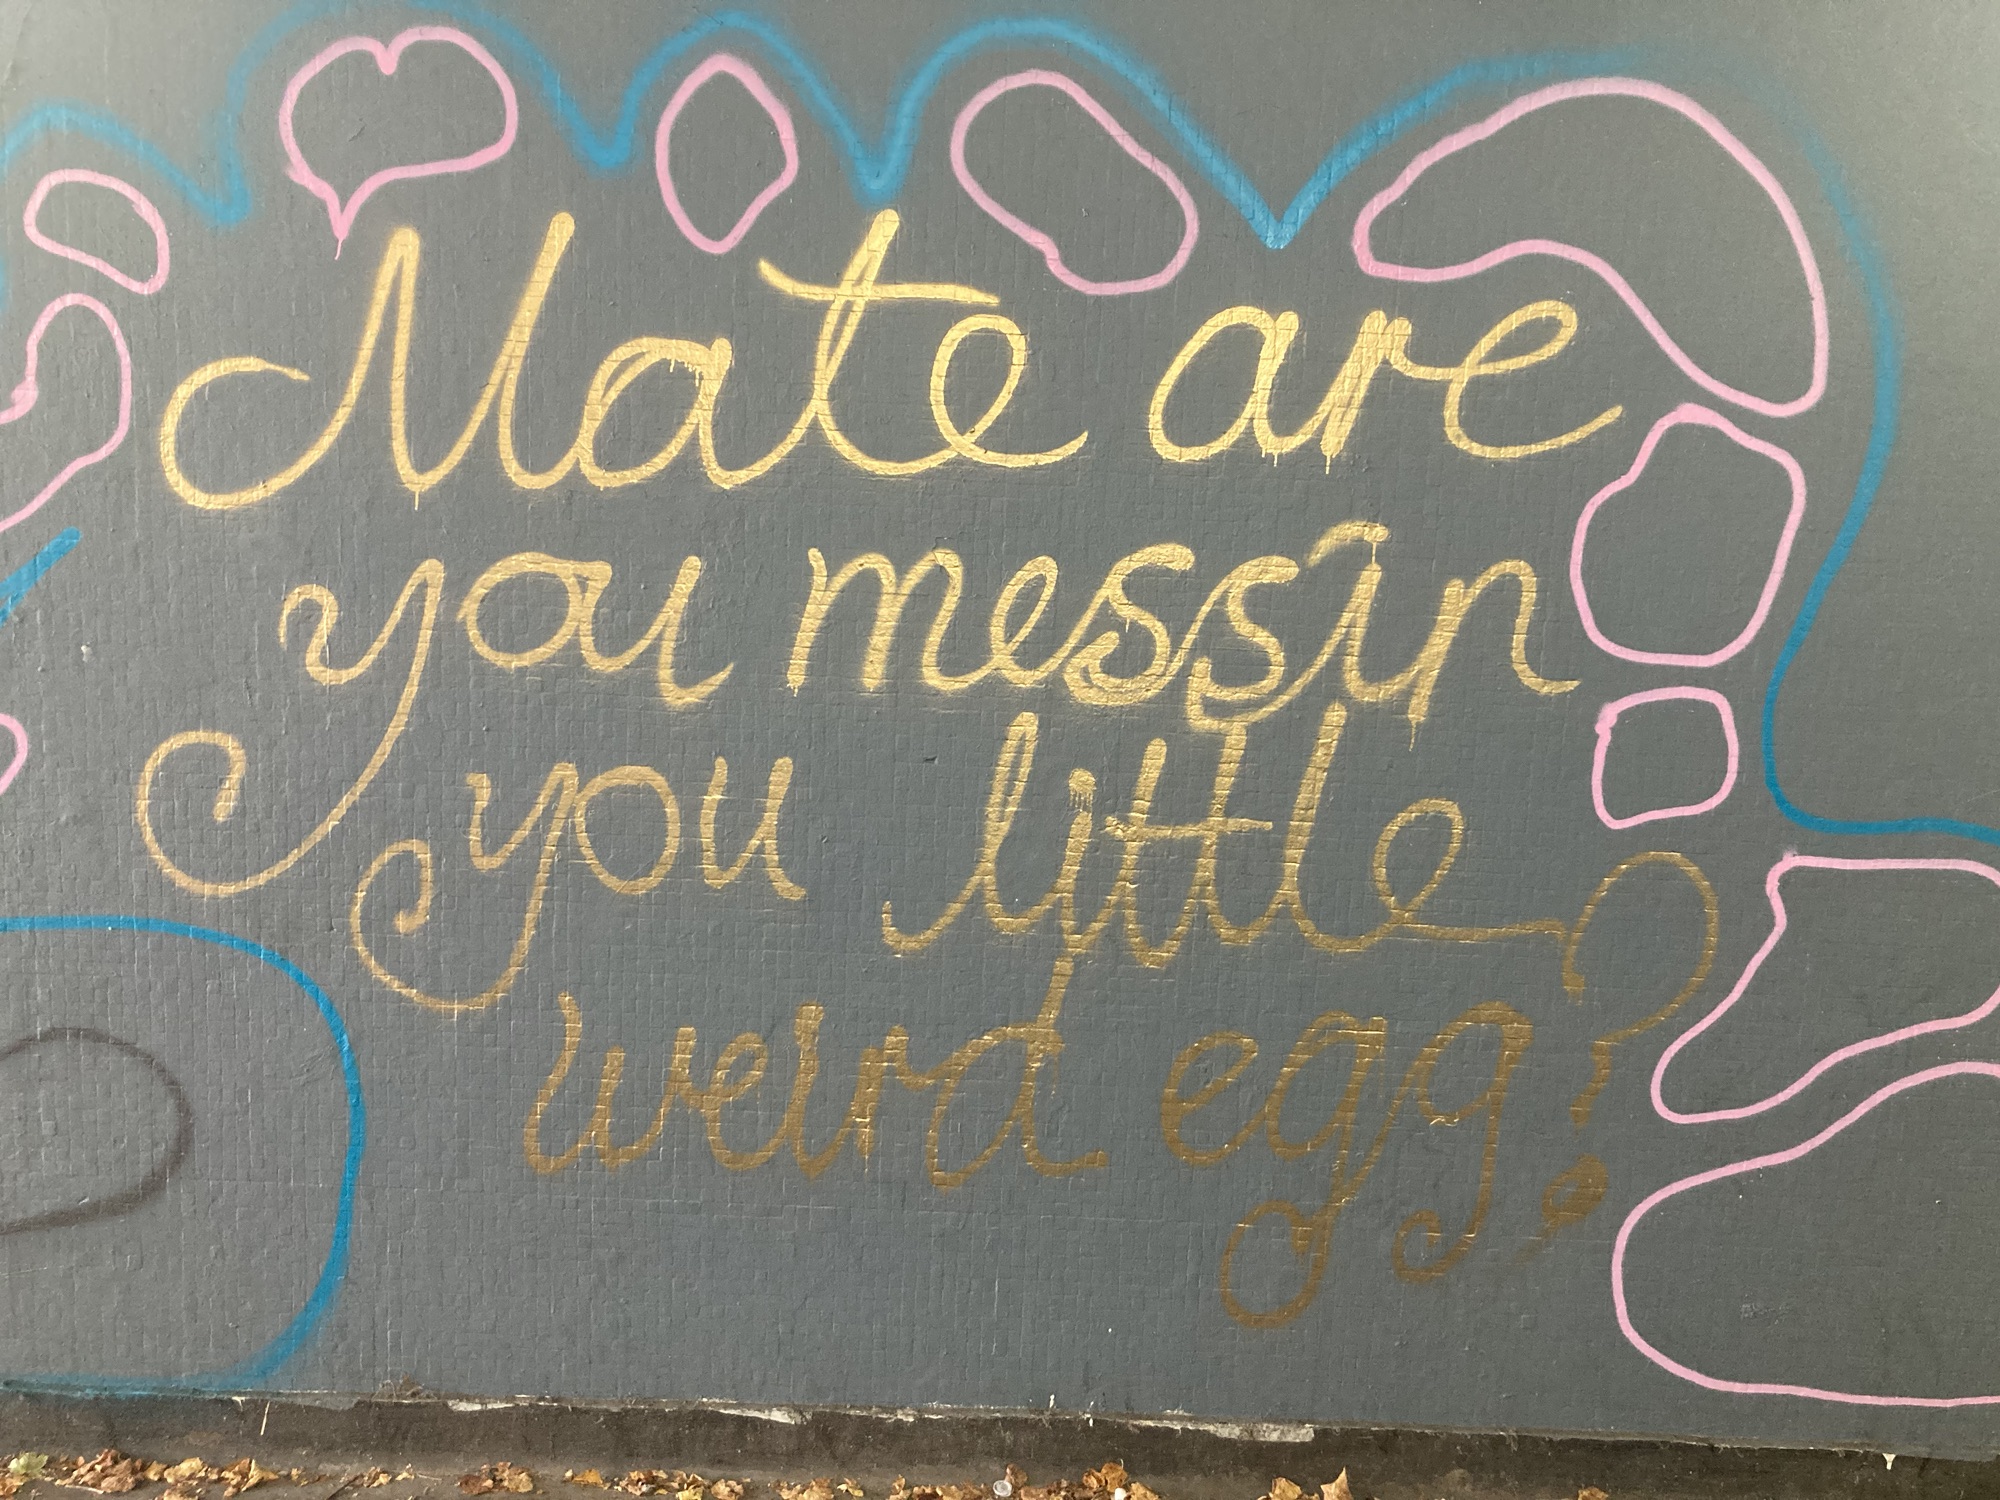 Mate are
you messin
you little
weird egg?